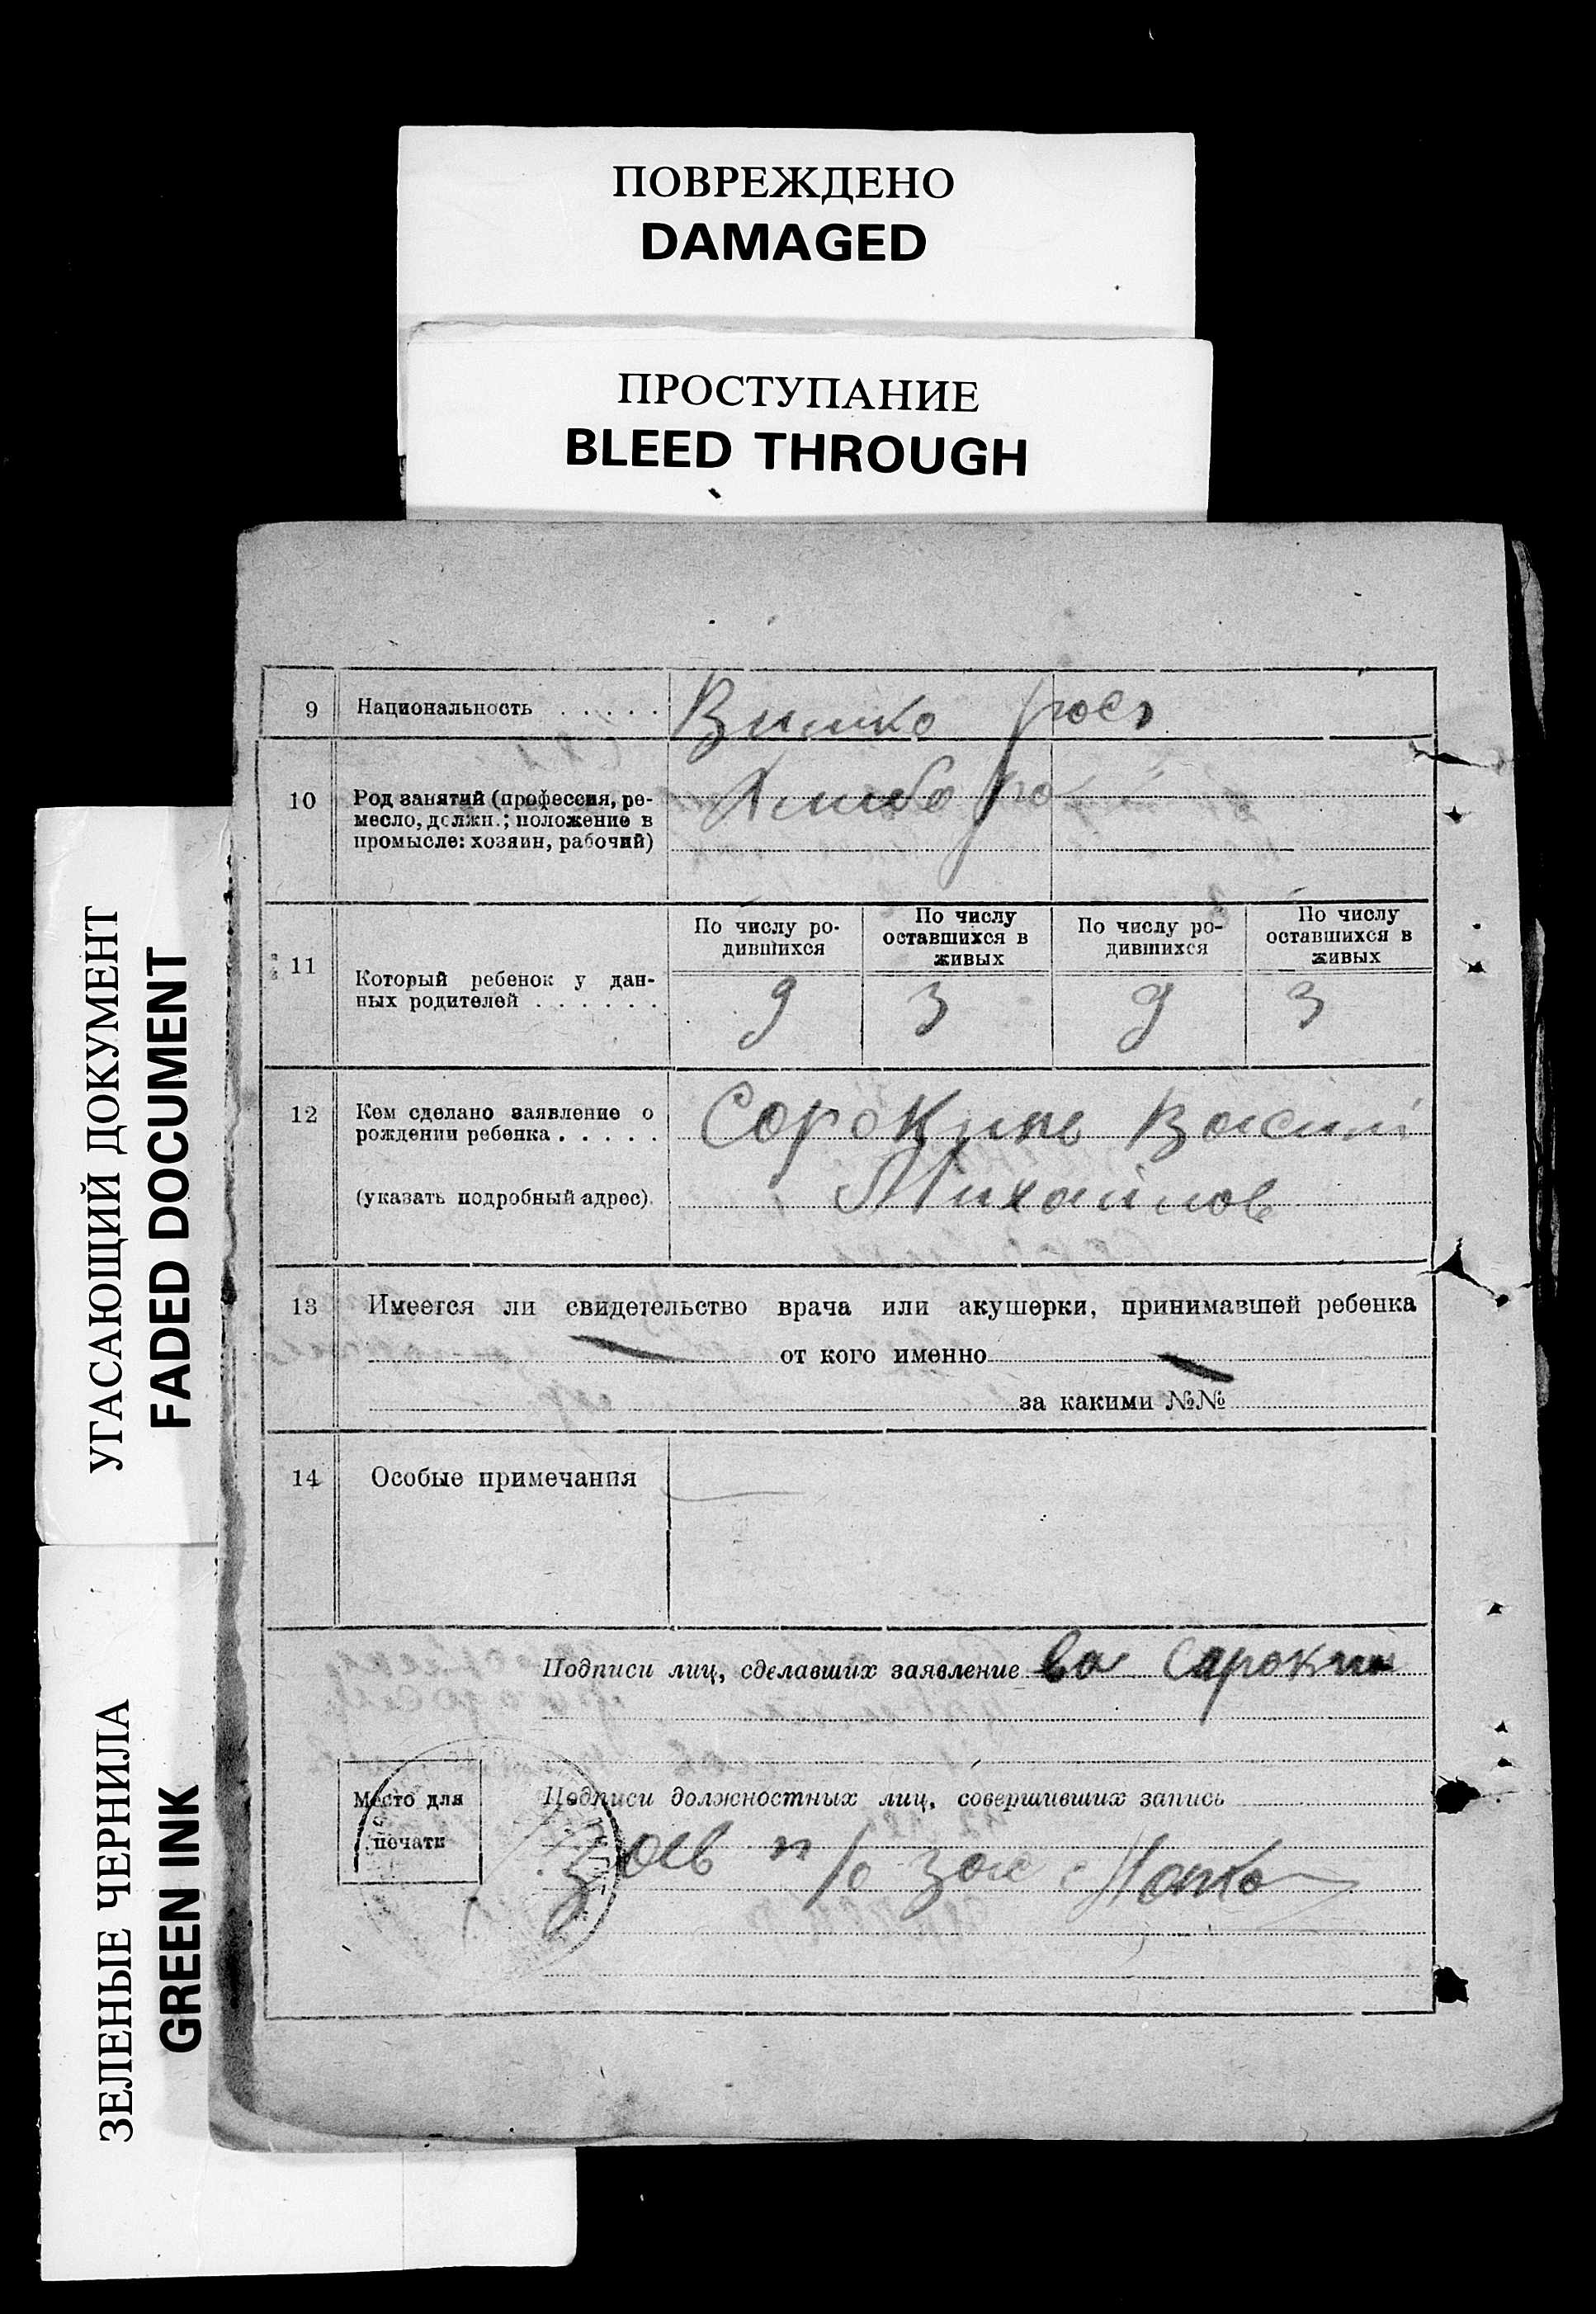 ПОВРЕЖДЕНО
DAMAGED
ПРОСТУПАНИЕ
BLEED THROUGH
УГАСАЮЩИЙ ДОКУМЕНТ
FADED DOCUMENT
ЗЕЛЕНЫЕ ЧЕРНИЛА
GREEN INK
9 Национальность . . . . . Вилико росз
10 Род занятий (профессия, ре-
месло, должн.; положение в
промысле: хозяин, рабочий)
Хлибороб
11 Который ребенок у дан-
ных родителей . . . . . .
По числу ро-
дившихся
По числу
оставшихся в
живых
По числу ро-
дившихся
По числу
оставшихся в
живых
9 3 9 3
12 Кем сделано заявление о
рождении ребенка . . . . .
(указать подробный адрес).
Сорокинь Васили
Михаилов
13 Имеется ли свидетельство врача или акушерки, принимавшей ребенка
от кого именно
за какими №№
14 Особые примечания
Подписи лиц, сделавших заявление Ва Сарокин
Место для
печати
Подписи должностных лиц, совершивших запись
Зав п/о загс